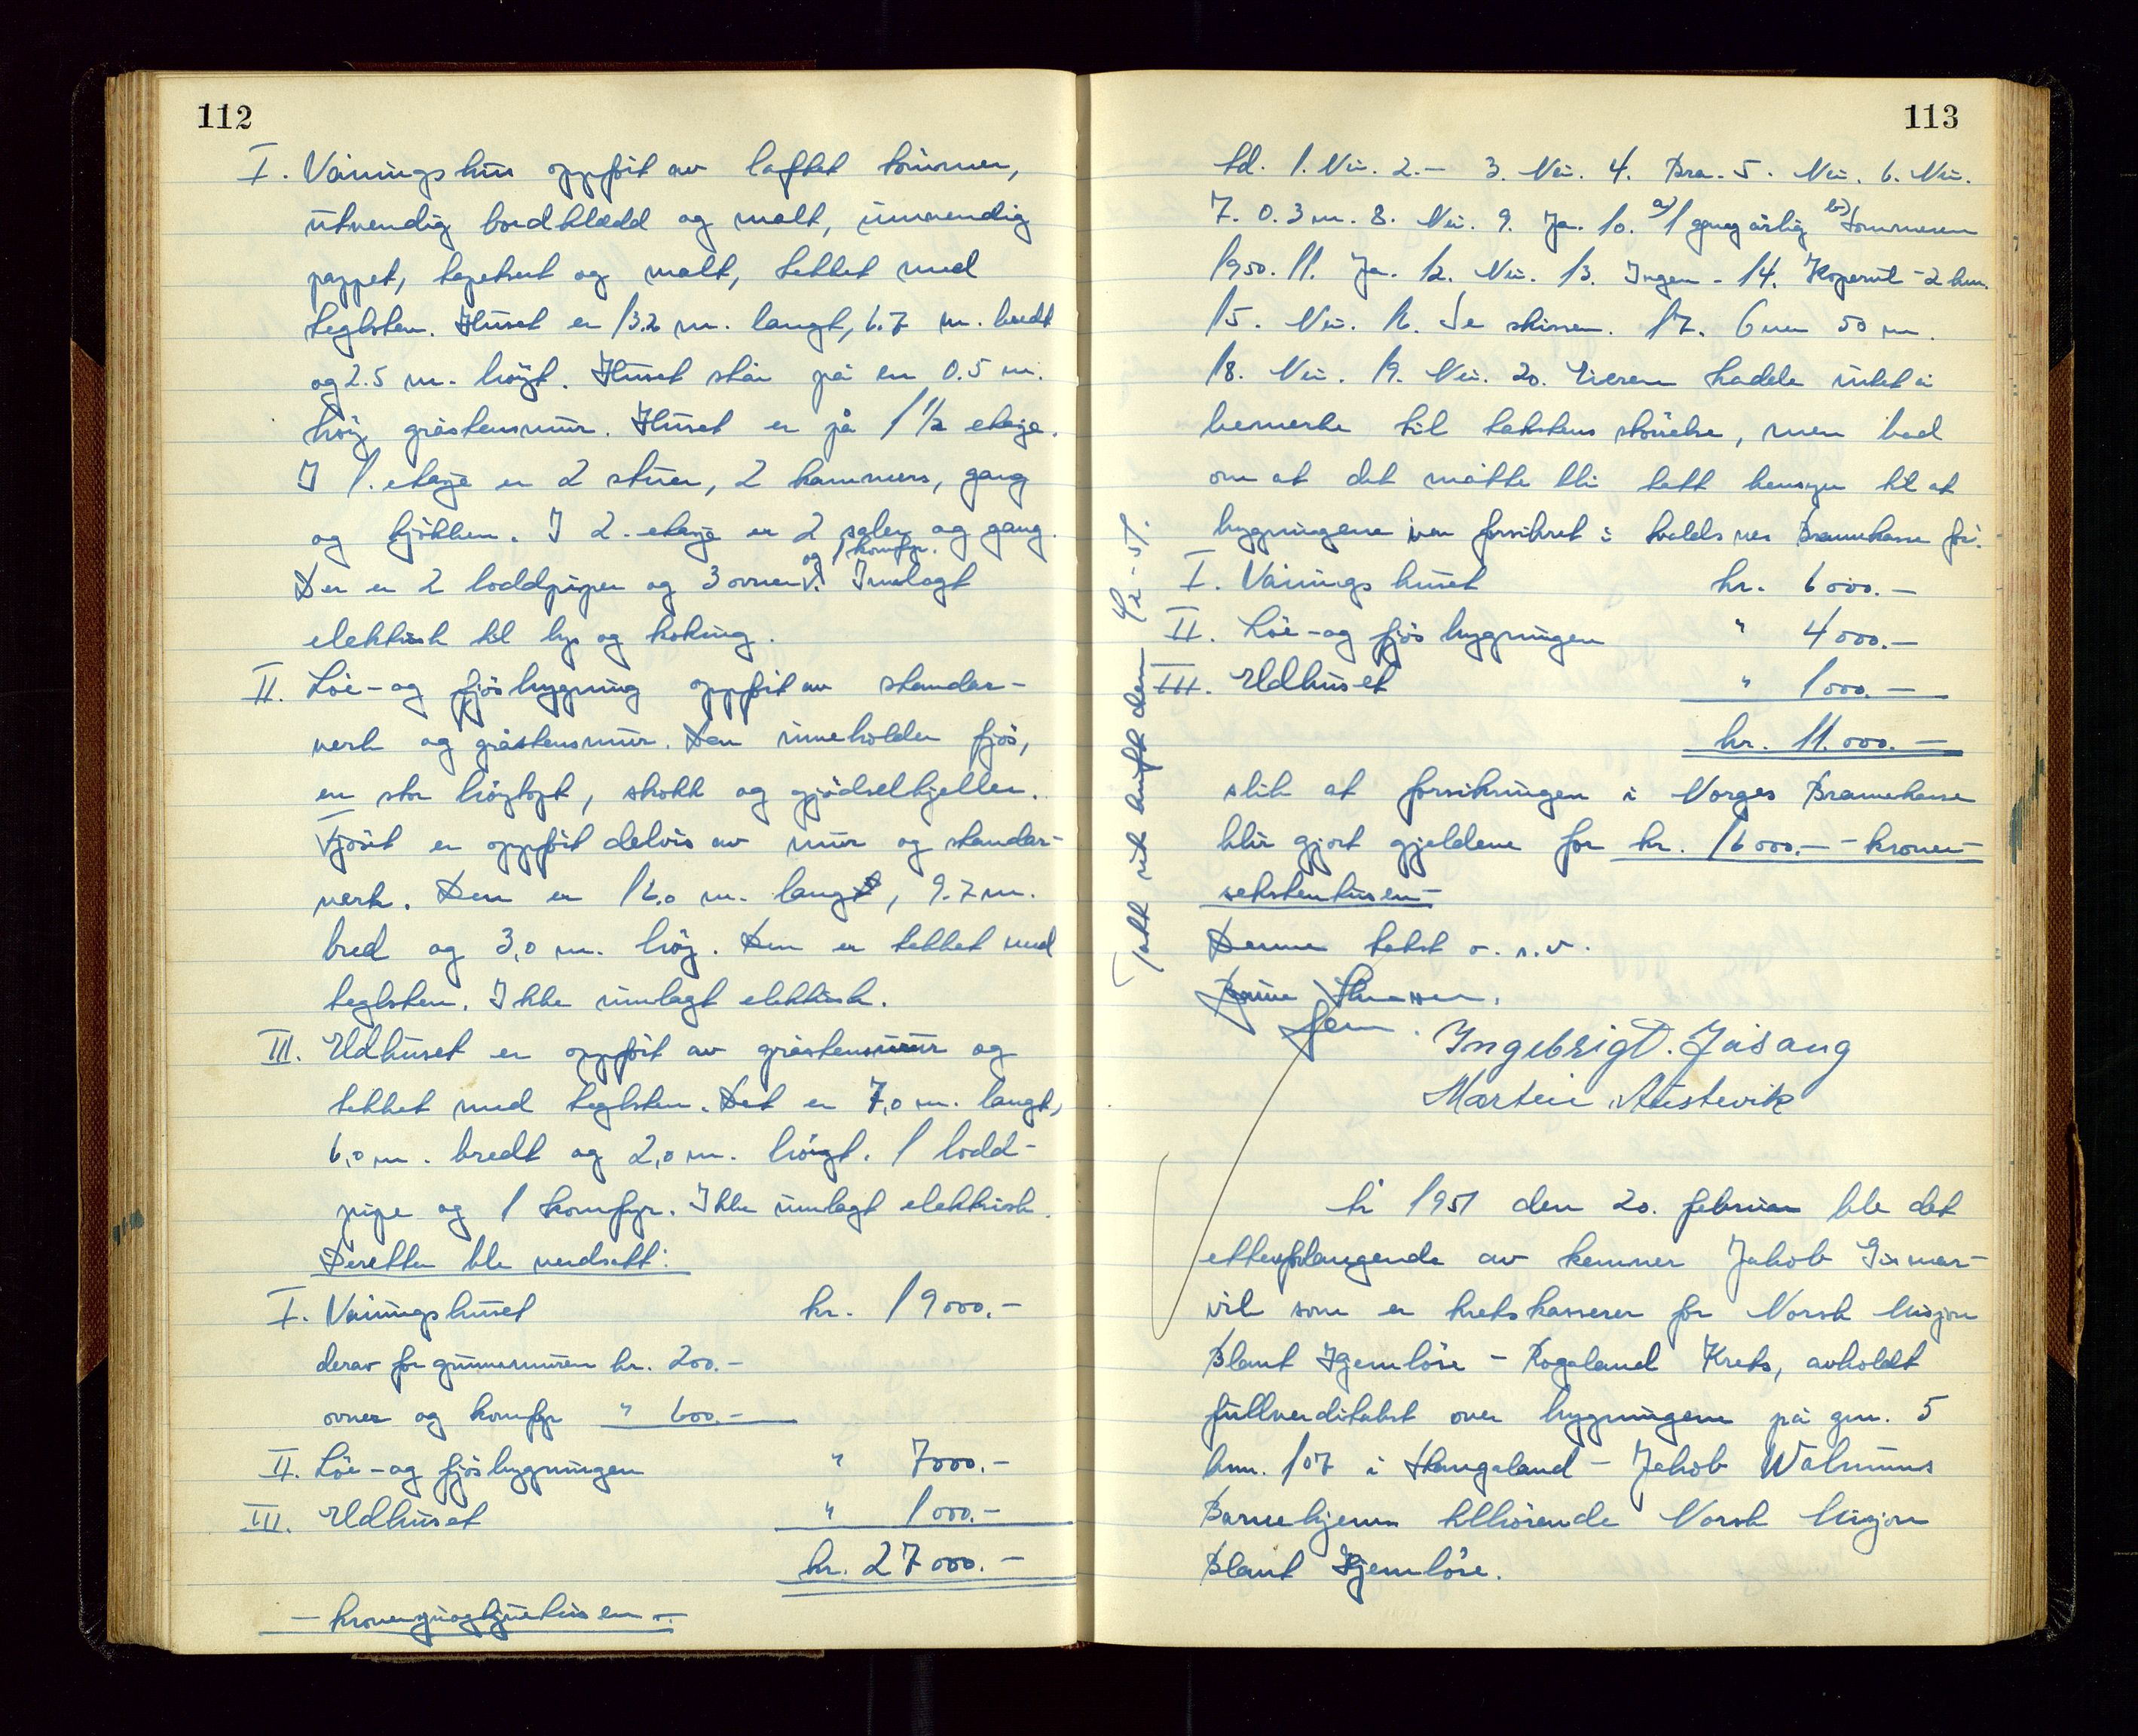 112
I. Våningshus oppført av laftet tømmer,
utvendig bordkledd og malt, innvendig
pappet, tapetsert og malt, tekket med
teglsten. Huset er 13.2 m. langt, 6.7 m. bredt
og 2.5 m. høyt. Huset står på en 0.5 m.
høy gråstensmur. Huset er på 1 1/2 etage.
I 1. etage er 2 stuer, 2 kammers, gang
og kjøkken. I 2. etage er 2 saler og gang.
og 1 komfyr.
Der er 2 loddpiper og 3 ovner. Innlagt
elektrisk til lys og koking.
II. Løe- og fjøsbygning oppført av stender-
verk og gråstensmur. Den inneholder fjøs,
en stor høytopt, skokk og gjødselkjeller.
Fjøset er oppført delvis av mur og stender-
verk. Den er 16.0 m. lang, 9.7 m.
bred og 3,0 m. høy. Den er tekket med
teglsten. Ikke innlagt elektrisk.
III. Eldhuset er oppført av gråstensmur og
tekket med teglsten. Det er 7,0 m. langt,
6,0 m. bredt og 2,0 m. høygt. 1 lodd-
pipe og 1 komfyr. Ikke innlagt elektrisk.
Deretter ble verdsatt:
I. Våningshuset kr. 19000.-
derav for grunnmuren kr. 200.-
ovner og komfyr " 600.-
II. Løe- og fjøsbygningen " 7000.-
III. Eldhuset " 1000.-
kr. 27000.-
- kronersjuogtjuetusen -
113
td. 1. Nei. 2.- 3. Nei. 4. Bra. 5. Nei. 6. Nei.
7. 0.3 m. 8. Nei. 9. Ja. 10. a) 1 gang årlig b) Sommeren
1950. 11. Ja. 12. Nei. 13. Ingen - 14. Kopervik - 2 km.
15. Nei. 16. Se skissen. 17. Over 50 m.
18. Nei. 19. Nei. 20. Eieren hadde intet å
bemerke til takstens størrelse, men bad
om at det måtte bli tatt hensyn til at
bygningene var forsikret i Avaldsnes Brannkasse for:
I. Våningshuset kr. 6000.-
II. Løe- og fjøsbygningen " 4000.-
III. Eldhuset " 1000.-
kr. 11.000.-
slik at forsikringen i Norges Brannkasse
blir gjort gjeldene for kr. 16000.- - kroner-
sekstentusen-
Denne takst o.s.v.
Ingebrigt. Jåsang
Martin Austevik
År 1951 den 20. februar ble det
etter forlangende av kemner Jakob Gismar-
vik som er kretskasserer for Norsk Misjon
Blant Hjemløse - Rogaland Krets, avholdt
fullverditakst over bygningene på gnr. 5
bnr. 107 i Haugaland - Jakob Walnums
Barnehjem tilhørende Norsk Misjon
Blant Hjemløse.
takst utskrift den 4/2-51.